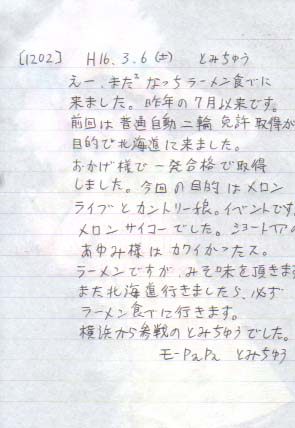 [1202] H16.3.6(土) とみちゅう
えー、また²なっちラーメン食べに
来ました。昨年の7月以来です。
前回は普通自動二輪免許取得が
目的で北海道に来ました。
おかげ様で一発合格で取得
しました。今回の目的はメロン
ライブとカントリー娘。イベントです
メロンサイコーでした。ショートヘアの
あゆみ様はカワイかったス。
ラーメンですが、みそ味を頂きます
また北海道行きましたら、必ず
ラーメン食べに行きます。
横浜から参戦のとみちゅうでした。
モーPaぇPaぇ とみちゅう